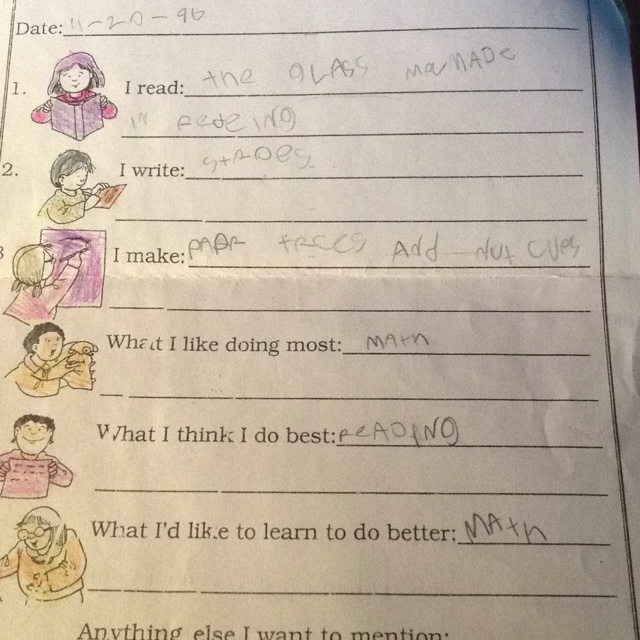 Date: 11-20-96
1. I read: the GLASS
in
2. I write:
3 I make: PAPR trees And
What I like doing most: MAth
What I think I do best: reADING
What I'd like to learn to do better: MAth
Anything else I want to mention: